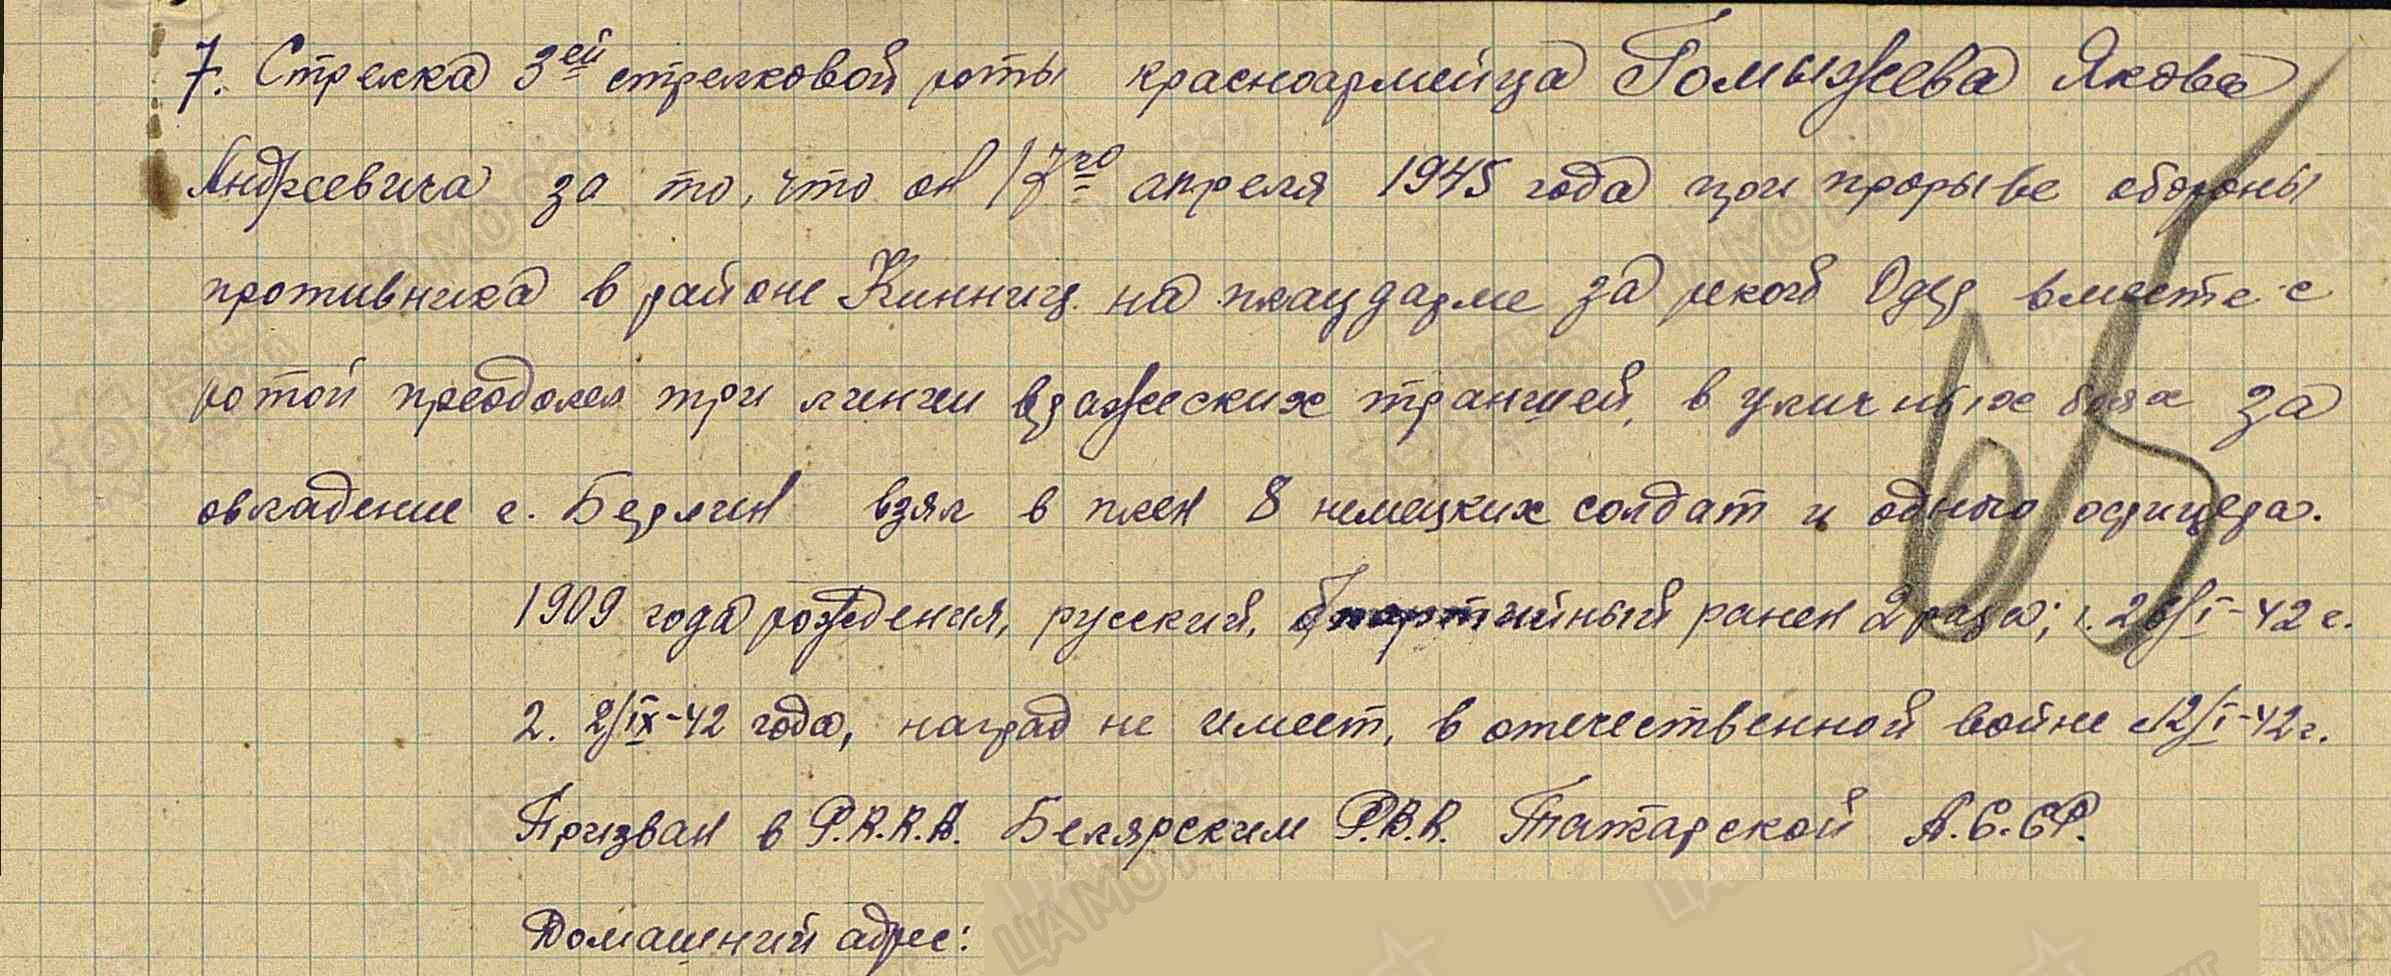 7. Стрелка 3ей стрелковой роты красноармейца Гомыжева Якова
Андреевича за то, что он 17го апреля 1945 года при прорыве обороны
противника в районе Кинниц на плацдарме за рекой Одер вместе с
ротой преодолел три линии вражеских траншей, в уличных боях за
овладение г. Берлин взял в плен 8 немецких солдат и одного офицера.
1909 года рождения, русский, б/партийный ранен 2 раза; 1. 26/I-42 г.
2. 2/IX-42 года, наград не имеет, в отечественной войне с 12/I-42 г.
Призван в Р.К.К.А. Белярским Р.В.К. Татарской А.С.С.Р.
Домашний адрес:
65